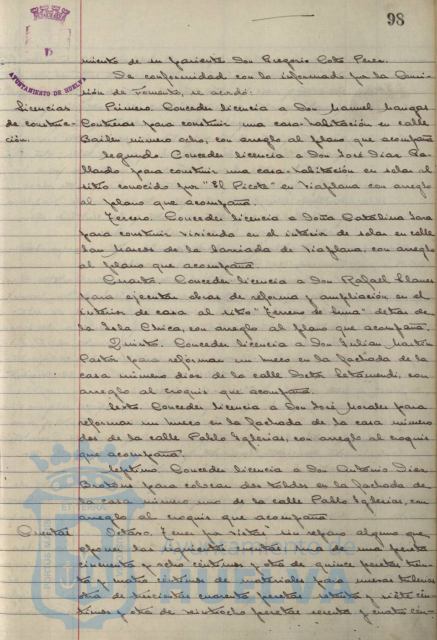 98
AYUNTAMIENTO DE HUELVA
miento de su pariente Don Gregorio Coto Perez.
De conformidad con lo informado por la Comi-
sión de Fomento, se acordó:
Licencias
de construc-
ción.
Primero. Conceder licencia a Don Manuel
Contreras para construir una casa-habitación en calle
Bailén número ocho, con arreglo al plano que acompaña
Segundo. Conceder licencia a Don José Diaz Ga-
llardo para construir una casa-habitación en solar al
sitio conocido por "El Picote" en Viaplana con arreglo
al plano que acompaña.
Tercero. Conceder licencia a Doña Catalina Lara
para construir vivienda en el interior de solar en calle
San Marcos de la barriada de Viaplana, con arreglo
al plano que acompaña.
Cuarto. Conceder licencia a Don Rafael Llanes
para ejecutar obras de reforma y ampliación en el
interior de casa al sitio "Terreno de" detras de
la Isla Chica, con arreglo al plano que acompaña.
Quinto. Conceder licencia a Don Julian Martín
Pastor para reformar un hueco en la fachada de la
casa número diez de la calle Beta Letamendi, con
arreglo al croquis que acompaña.
Sexto. Conceder licencia a Don José Morales para
reformar un hueco en la fachada de la casa número
dos de la calle Pablo Iglesias, con arreglo al croquis
que acompaña.
Septimo. Conceder licencia a Don Antonio Diaz
para colocar dos toldos en la fachada de
la casa número uno de la calle Pablo Iglesias, con
arreglo al croquis que acompaña
Cuentas
Octavo. Tener por vistas sin reparo alguno que
oponer las siguientes cuentas: una de una peseta
cincuenta y ocho céntimos y otra de quince pesetas trein-
ta y cuatro céntimos de materiales para
otra de trescientas cuarenta pesetas setenta y siete cén-
timos y otra de veintiocho pesetas sesenta y cuatro cén-